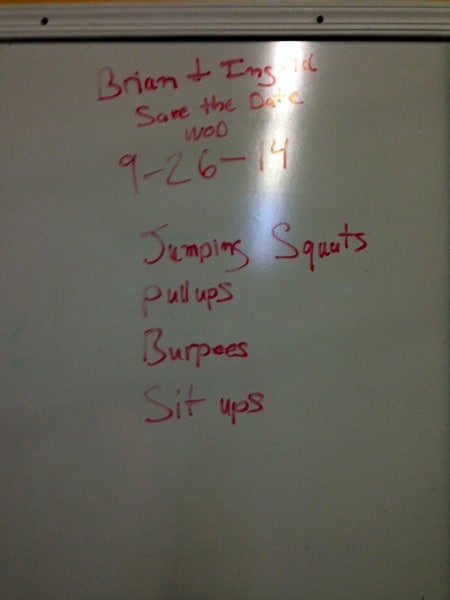 Brian + Ingrid
Save the Date
WOD
9-26-14
Jumping Squats
Pull ups
Burpees
Sit ups